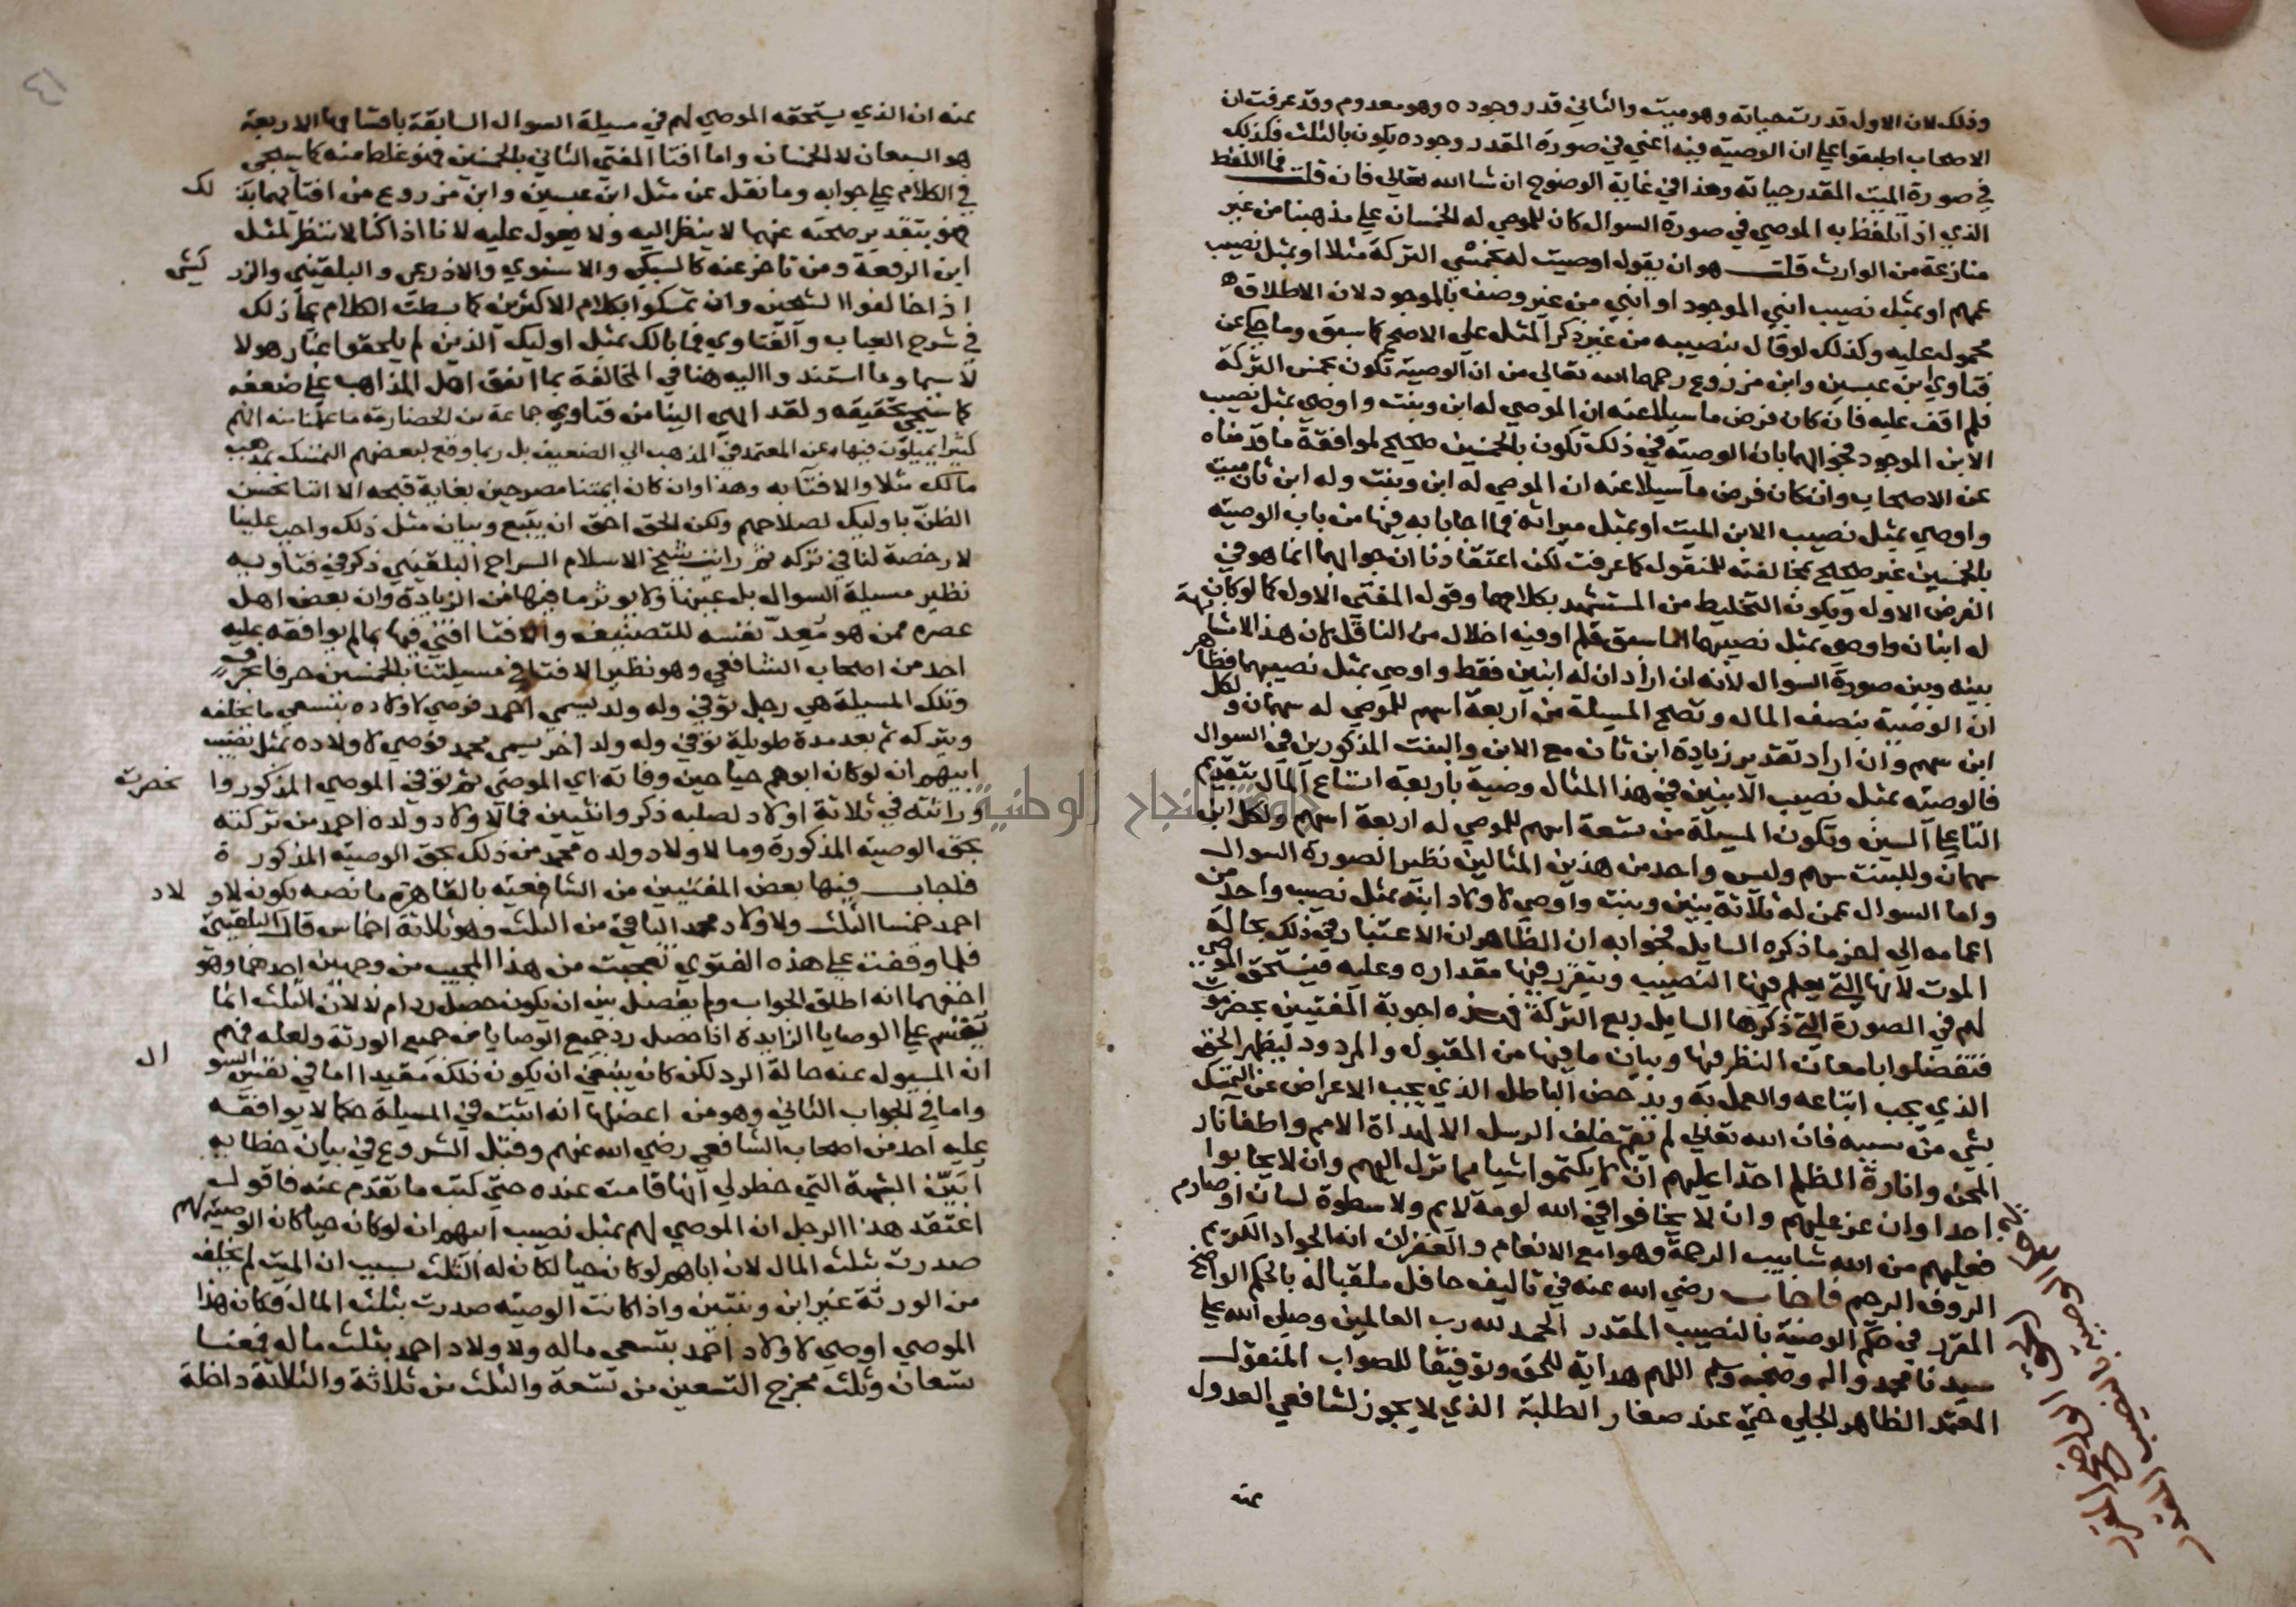 وذلك لان الاول قدرت حياته وهو ميت والثاني قدر وجوده وهو معدوم وقد عرفت ان
الاصحاب اطبقوا علي ان الوصية فيه اعني في صورة المقدر وجوده يكون بالثلث فكذلك
في صورة الميت المقدر حياته وهذا في غاية الوضوح ان شا الله تعالي فان قلت فما اللفظ
الذي اذا تلفظ به الموصي في صورة السوال كان للموصي له الخمسان علي مذهبنا من غير
منازعة من الوارث قلت هو ان يقول اوصيت له بخمسي التركة مثلا او بمثل نصيب
عمهم او بمثل نصيب ابني الموجود او ابني من غير وصفه بالموجود لان الاطلاق
محمول عليه وكذلك لو قال بنصيبه من غير ذكر المثل علي الاصح كما سبق وما حكي عن
فتاوي ابن عبسين وابن مزروع رحمهما الله تعالي من ان الوصية تكون بخمسي التركة
فلم اقف عليه فان كان فرض ما سيلا عنه ان الموصي له ابن وبنت واوصي بمثل نصيب
الابن الموجود فجوابهما بان الوصية في ذلك تكون بالخمسين صحيح لموافقة ما قدمناه
عن الاصحاب وان كان فرض ما سيلا عنه ان الموصي له ابن وبنت وله ابن ثان ميت
واوصي بمثل نصيب الابن الميت او بمثل ميراثه فما اجابا به فيها من باب الوصية
بالخمسين غير صحيح لمخالفته للمنقول كما عرفت لكن اعتقادنا ان جوابهما انما هو في
الفرض الاول ويكون التخليط من المستشهد بكلامهما وقول المفتي الاول كما لو كان
له ابنان واوصي بمثل نصيبهما الما سبق قلم او فيه اخلال من الناقل لان هذا لا مشابهة
بينه وبين صورة السوال لانه ان اراد ان له ابنين فقط واوصي بمثل نصيبهما فظاهر
ان الوصية بنصف المال وتصح المسيلة من اربعة اسهم للموصي له سهمان ولكل
ابن سهم وان اراد تقدير زيادة ابن ثان مع الابن والبنت المذكورين في السوال
فالوصية بمثل نصيب الابنين في هذا المثال وصية باربعة اتساع المال بتقديم
التا علي السين وتكون المسيلة من تسعة اسهم للموصي له اربعة اسهم ولكل ابن
سهمان وللبنت سهم وليس واحد من هذين المثالين نظير الصورة السوال
واما السوال عمن له ثلاثة بنين وبنت واوصي لاولاد ابنه بمثل نصيب واحد من
اعمامه الي اخر ما ذكره السايل فجوابه ان الظاهر ان الاعتبار في ذلك بحالة
الموت لانها التي يعلم فيها النصيب ويتقرر فيها مقداره وعليه فيستحق الموصي
لهم في الصورة التي ذكرها السايل ربع التركة فهذه اجوبة المفتيين بحضرموت
فتفضلوا بامعان النظر فيها وبيان ما فيها من المقبول والمردود ليظهر الحق
الذي يجب اتباعه والعمل به ويدحض الباطل الذي يجب الاعراض عن التمسك
بشي من سببه فان الله تعالي لم يقم خلف الرسل الا لهداة الامم واطفا نار
المحن وانارة الظلم اخذا عليهم ان لا يكتموا شيا مما نزل اليهم وان لا يحابوا
احدا وان عز عليهم وان لا يخافوا في الله لومة لايم ولا سطوة لسان او صارم
فعليهم من الله شابيب الرحمة وهوامع الانعام والغفران انه الجواد الكريم
الروف الرحيم فاجاب رضي الله عنه في تاليف حافل ملقبا له بالحكم الواضح
المقرر في حكم الوصية بالنصيب المقدر الحمد لله رب العالمين وصلي الله علي
سيدنا محمد واله وصحبه وسلم اللهم هداية للحق وتوفيقا للصواب المنقول
المعتمد الظاهر الجلي حتي عند صغار الطلبة الذي لا يجوز لشافعي العدول
عنه
عنه ان الذي يستحقه الموصي لهم في مسيلة السوال السابقة باقسامها الاربعة
هو السبعان لا الخمسان واما افتا المفتي الثاني بالخمسين فهو غلط منه كما سيجي
في الكلام علي جوابه وما نقل عن مثل ابن عبسين وابن مزروع من افتايهما بذلك
فهو بتقدير صحته عنهما لا ينظر اليه ولا يعول عليه لانا اذا كنا لا ننظر لمثل
ابن الرفعة ومن تاخر عنه كالسبكي والاسنوي والاذرعي والبلقيني والزركشي
اذا خالفوا الشيخين وان تمسكوا بكلام الاكثرين كما بسطت الكلام علي ذلك
في شرح العباب والفتاوي فما بالك بمثل اوليك الذين لم يلحقوا غبار هولا
لا سيما وما استند واليه هنا في المخالفة بما اتفق اهل المذاهب علي ضعفه
كما سيجي تحقيقه ولقد انهي الينا من فتاوي جماعة من الحضارمة ما علمنا منه انهم
كثيرا يميلون فيها عن المعتمد في المذهب الي الضعيف بل ربما وقع لبعضهم التمسك بمذهب
مالك مثلا والافتا به وهذا وان كان ايمتنا مصرحين بغاية قبحه الا اننا نحسن
الظن باوليك لصلاحهم ولكن الحق احق ان يتبع وبيان مثل ذلك واجب علينا
لا رخصة لنا في تركه ثم رايت شيخ الاسلام السراج البلقيني ذكر في فتاويه
نظير مسيلة السوال بل عينها ولا يوثر ما فيها من الزيادة وان بعض اهل
عصره ممن هو معد نفسه للتصنيف والافتا افتي فيها بما لم يوافقه عليه
احد من اصحاب الشافعي وهو نظير الافتا في مسيلتنا بالخمسين حرفا بحرف
وتلك المسيلة هي رجل توفي وله ولد يسمي احمد فوصي لاولاده بتسعي ما يخلفه
ويتركه ثم بعد مدة طويلة توفي وله ولد اخر يسمي محمد فوصي لاولاده بمثل نصيب
ابيهم انه لو كان ابوهم حيا حين وفاته اي الموصي ثم توفي الموصي المذكور وانحصرت
وراثته في ثلاثة اولاد لصلبه ذكر وانثيين فما لاولاد ولده احمد من تركته
بحق الوصية المذكورة وما لاولاد ولده محمد من ذلك بحق الوصية المذكورة
فاجاب فيها بعض المفتيين من الشافعية بالقاهرة ما نصه يكون لاولاد
احمد خمسا الثلث ولاولاد محمد الباقي من الثلث وهو ثلاثة اخماس قال البلقيني
فلما وقفت علي هذه الفتوي تعجبت من هذا المجيب من وجهين احدهما وهو
اخفهما انه اطلق الجواب ولم يفصل بين ان يكون حصل رد ام لا لان الثلث انما
يقسم علي الوصايا الزايدة اذا حصل رد جميع الوصايا من جميع الورثة ولعله فهم
ان المسيول عنه حالة الرد لكن كان ينبغي ان يكون ذلك مقيدا اما في نفس السوال
واما في الجواب الثاني وهو من اعضلها انه اثبت في المسيلة حكما لا يوافقه
عليه احد من اصحاب الشافعي رضي الله عنهم وقبل الشروع في بيان خطايه
ابين الشبهة التي خطر لي انها قامت عنده حتي كتب ما تقدم عنه فاقول
اعتقد هذا الرجل ان الموصي لهم بمثل نصيب ابيهم ان لو كان حيا كان الوصية لهم
صدرت بثلث المال لان اباهم لو كان حيا لكان له الثلث بسبب ان الميت لم يخلف
من الورثة غير ابن وبنتين واذا كانت الوصية صدرت بثلث المال فكان هذا
الموصي اوصي لاولاد احمد بتسعي ماله ولاولاد احمد بثلث ماله فمعنا
تسعان وثلث مخرج التسعين من تسعة والثلث من ثلاثة والثلاثة داخلة
جامعة النجاح الوطنية